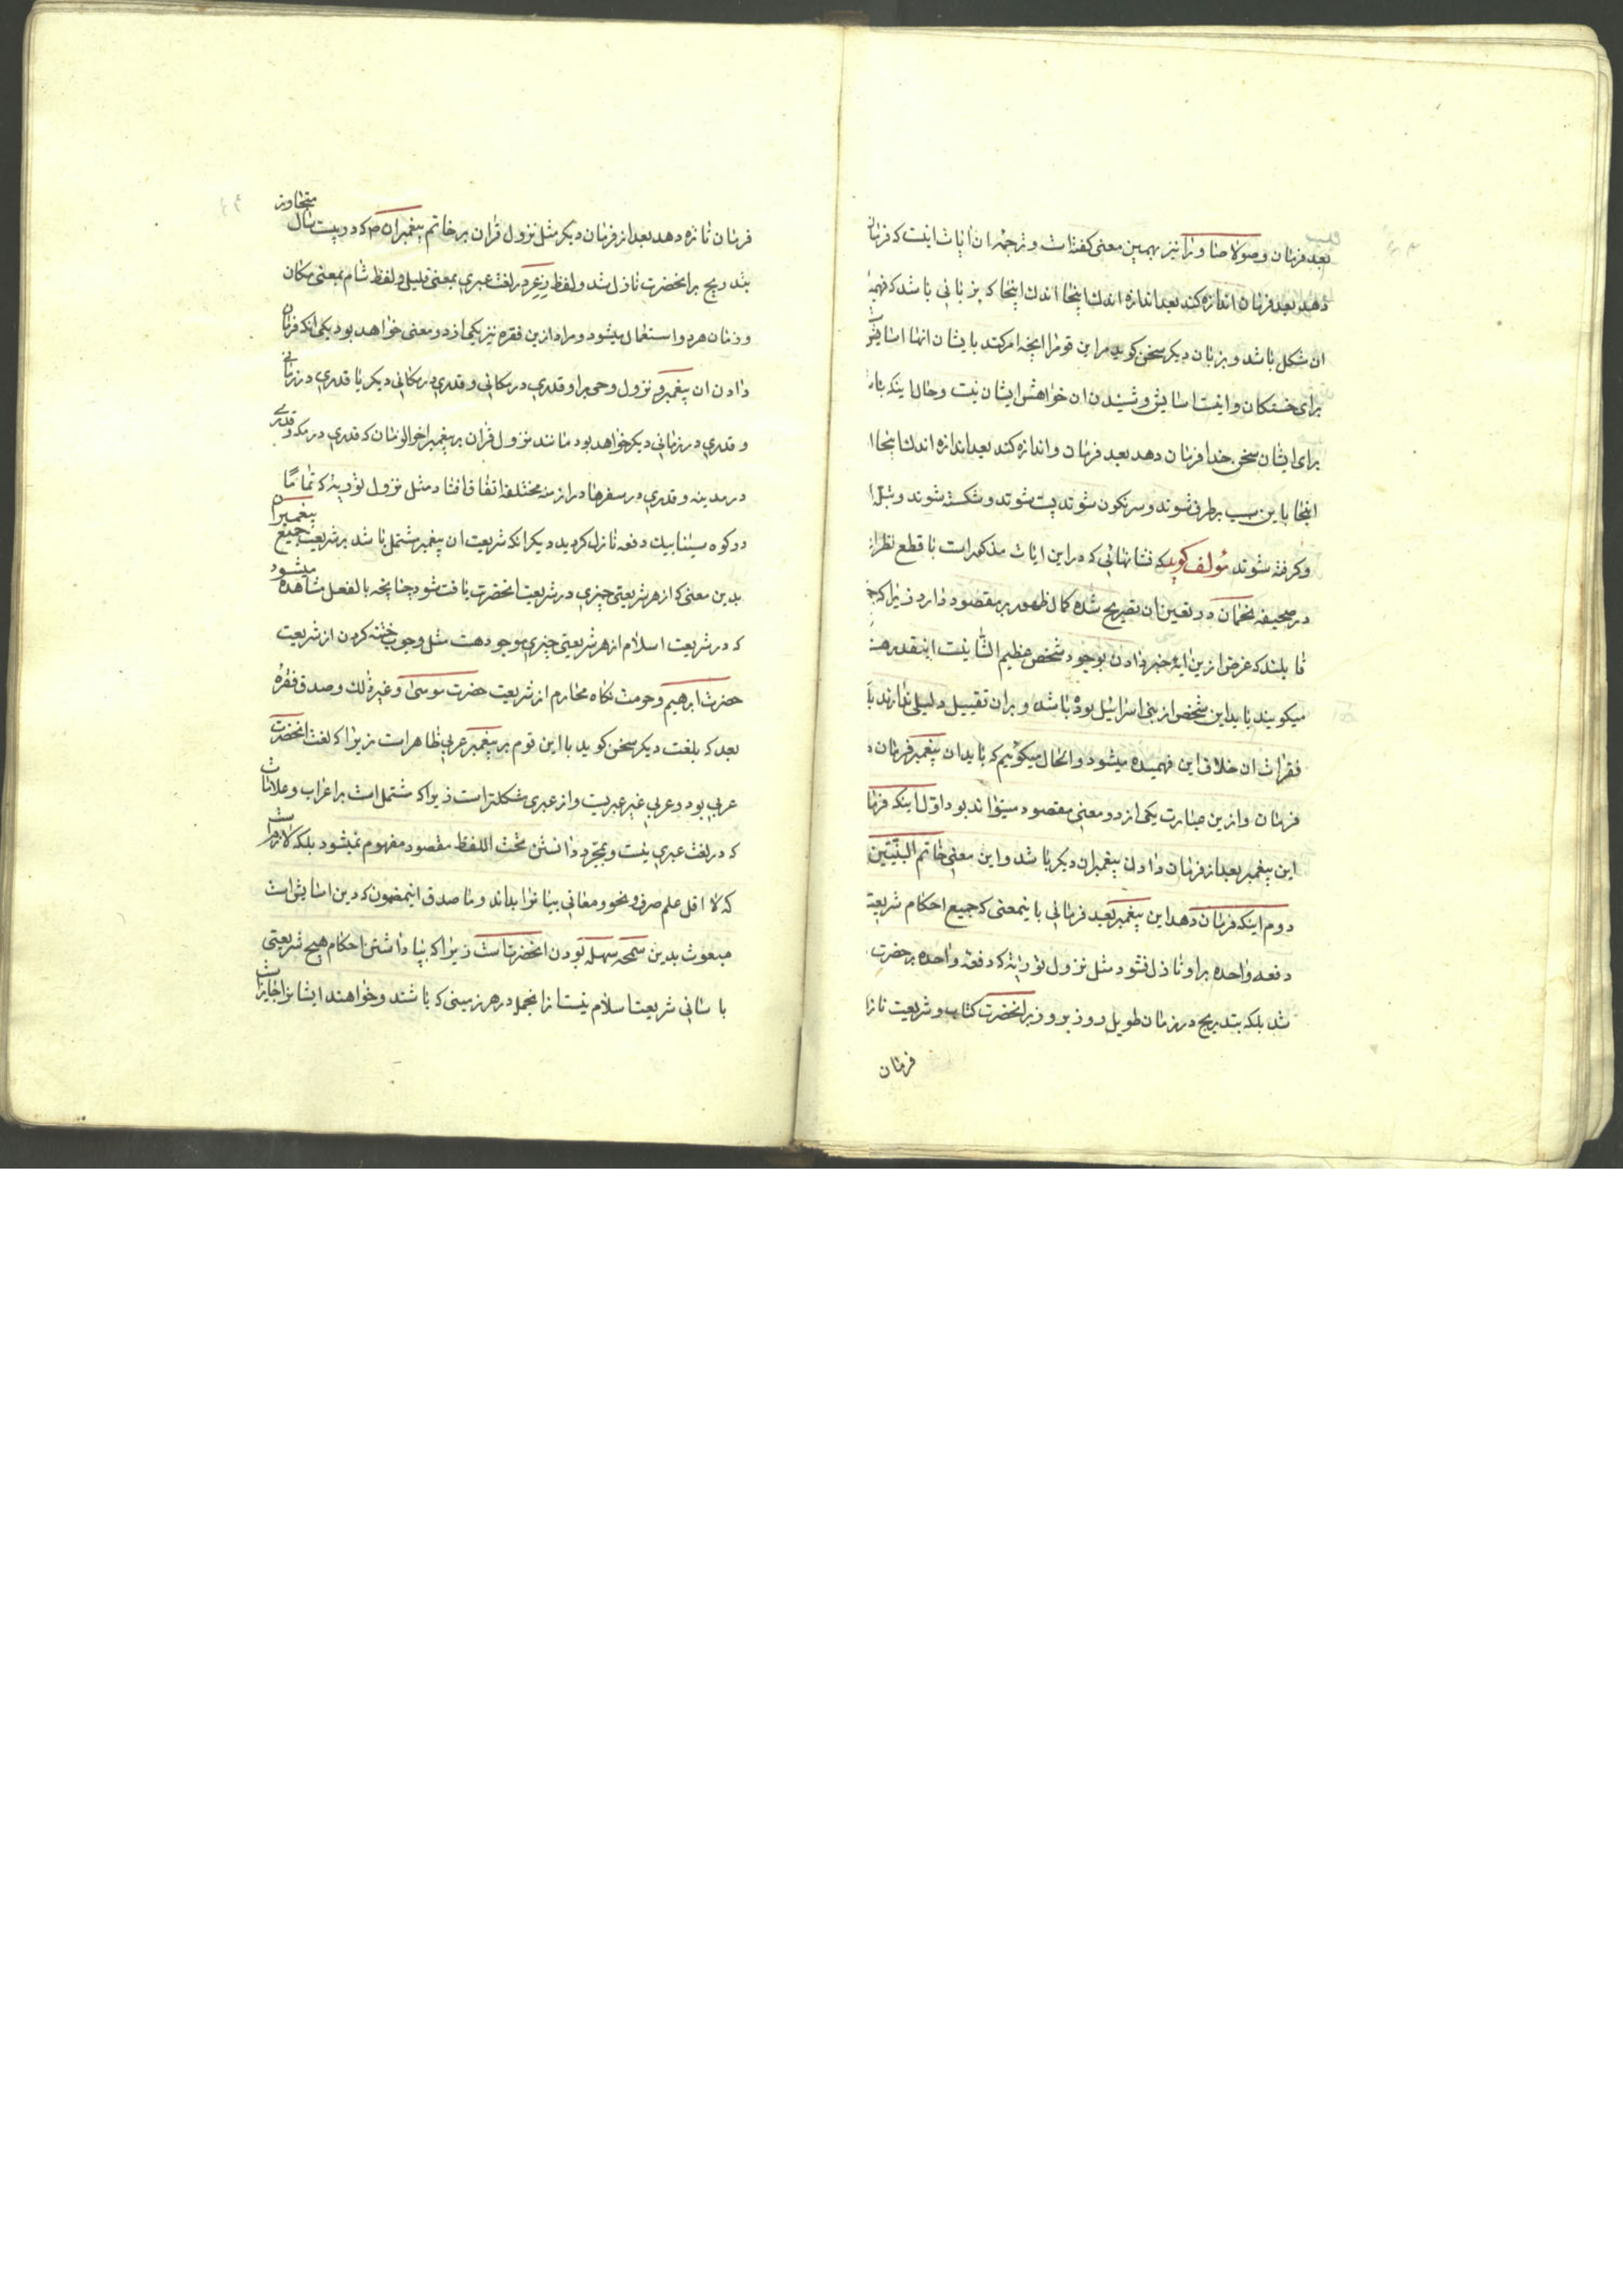 بعد فرمان وصولاصاو را نیز بهمین معنی گفته‌است و ترجمه ان ایات اینست که فرمان
دهد بعد فرمان اندازه کند بعد اندازه اندك اینجا اندك اینجا که بزبانی باشد که فهمید
ان شکل باشد و بزبان دیگر سخن گوید مر این قوم را انچه امر کند بایشان انها اسایش
برای خستگان و اینست اسایش و شنیدن ان خواهش ایشان نیست و حال اینکه باشد
برای ایشان سخن خدا فرمان دهد بعد فرمان و اندازه کند بعد اندازه اندك اینجا ا
اینجا باین سبب برطرف شوند و سرنگون شوند پست شوند و شکسته شوند و
و گرفته شوند مؤلف گوید که نشانهائی که در این ایات مذکور است با قطع نظر از
در صحیفه نخمان در تعیین ان تصریح شده کمال ظهور بر مقصود دارد زیرا که
قایلند که غرض ازین ایه خبر دادن بوجود شخص عظیم الشانیست اینقدر هست
میگویند باید این شخص از بنی اسرائیل بوده باشد و بر ان تقیید دلیلی ندارند با
فقرات ان خلاف این فهمیده میشود و الحال میگوئیم که باید ان پیغمبر فرمان د
فرمان و ازین عبارت یکی از دو معنی مقصود میتواند بود اول اینکه فرمان
این پیغمبر بعد از فرمان دادن پیغمبران دیگر باشد و این معنی خاتم النبیین
دوم اینکه فرمان دهد این پیغمبر بعد فرمانی باینمعنی که جمیع احکام شریعت
دفعه واحده بر او نازل نشود مثل نزول توریة که دفعة واحده بر حضرت
شد بلکه بتدریج در زمان طویل روز بروز بر انحضرت کتاب و شریعت ناز
فرمان
فرمان تازه دهد بعد از فرمان دیگر مثل نزول قران بر خاتم پیغمبران ص که در بیست سال متجاوز
بتدریج بر انحضرت نازل شد و لفظ زعر در لغت عبری بمعنی قلیل و لفظ شام بمعنی مکان
و زمان هر دو استعمال میشود و مراد ازین فقره نیز یکی از دو معنی خواهد بود یکی انکه فرمان
دادن ان پیغمبر و نزول وحی بر او قدری در مکانی و قدری در مکانی دیگر یا قدری در زمانی
و قدری در زمانی دیگر خواهد بود مانند نزول قران بر پیغمبر اخر الزمان که قدری در مکه و قدری
در مدینه و قدری در سفرها در ازمنه مختلفه اتفاق افتاد مثل نزول توریة که تماما
در کوه سینا بیك دفعه نازل گردید دیگر انکه شریعت ان پیغمبر مشتمل باشد بر شریعت جمیع پیغمبران
بدین معنی که از هر شریعتی چیزی در شریعت انحضرت یافت شود چنانچه بالفعل مشاهده میشود
که در شریعت اسلام از هر شریعتی چیزی موجود هست مثل وجوب ختنه کردن از شریعت
حضرت ابرهیم و حرمت نکاه محارم از شریعت حضرت موسی و غیر ذلك و صدق فقره
بعد که بلغت دیگر سخن گوید با این قوم بر پیغمبر عربی ظاهر است زیرا که لغت انحضرت
عربی بود و عربی غیر عبریست و از عبری مشکلتر است زیرا که مشتمل است بر اعراب و علامات
که در لغت عبری نیست و بمجرد دانستن تحت اللفظ مقصود مفهوم نمیشود بلکه لازم است
که لا اقل علم صرف و نحو و معانی بیانرا بداند و ما صدق اینمضمون که دین اسایش است
مبعوث بدین سمحه سهله بودن انحضرتست زیرا که بپا داشتن احکام هیچ شریعتی
باسانی شریعت اسلام نیست از انجمله در هر زمینی که باشند و خواهند ایشانرا جایز است